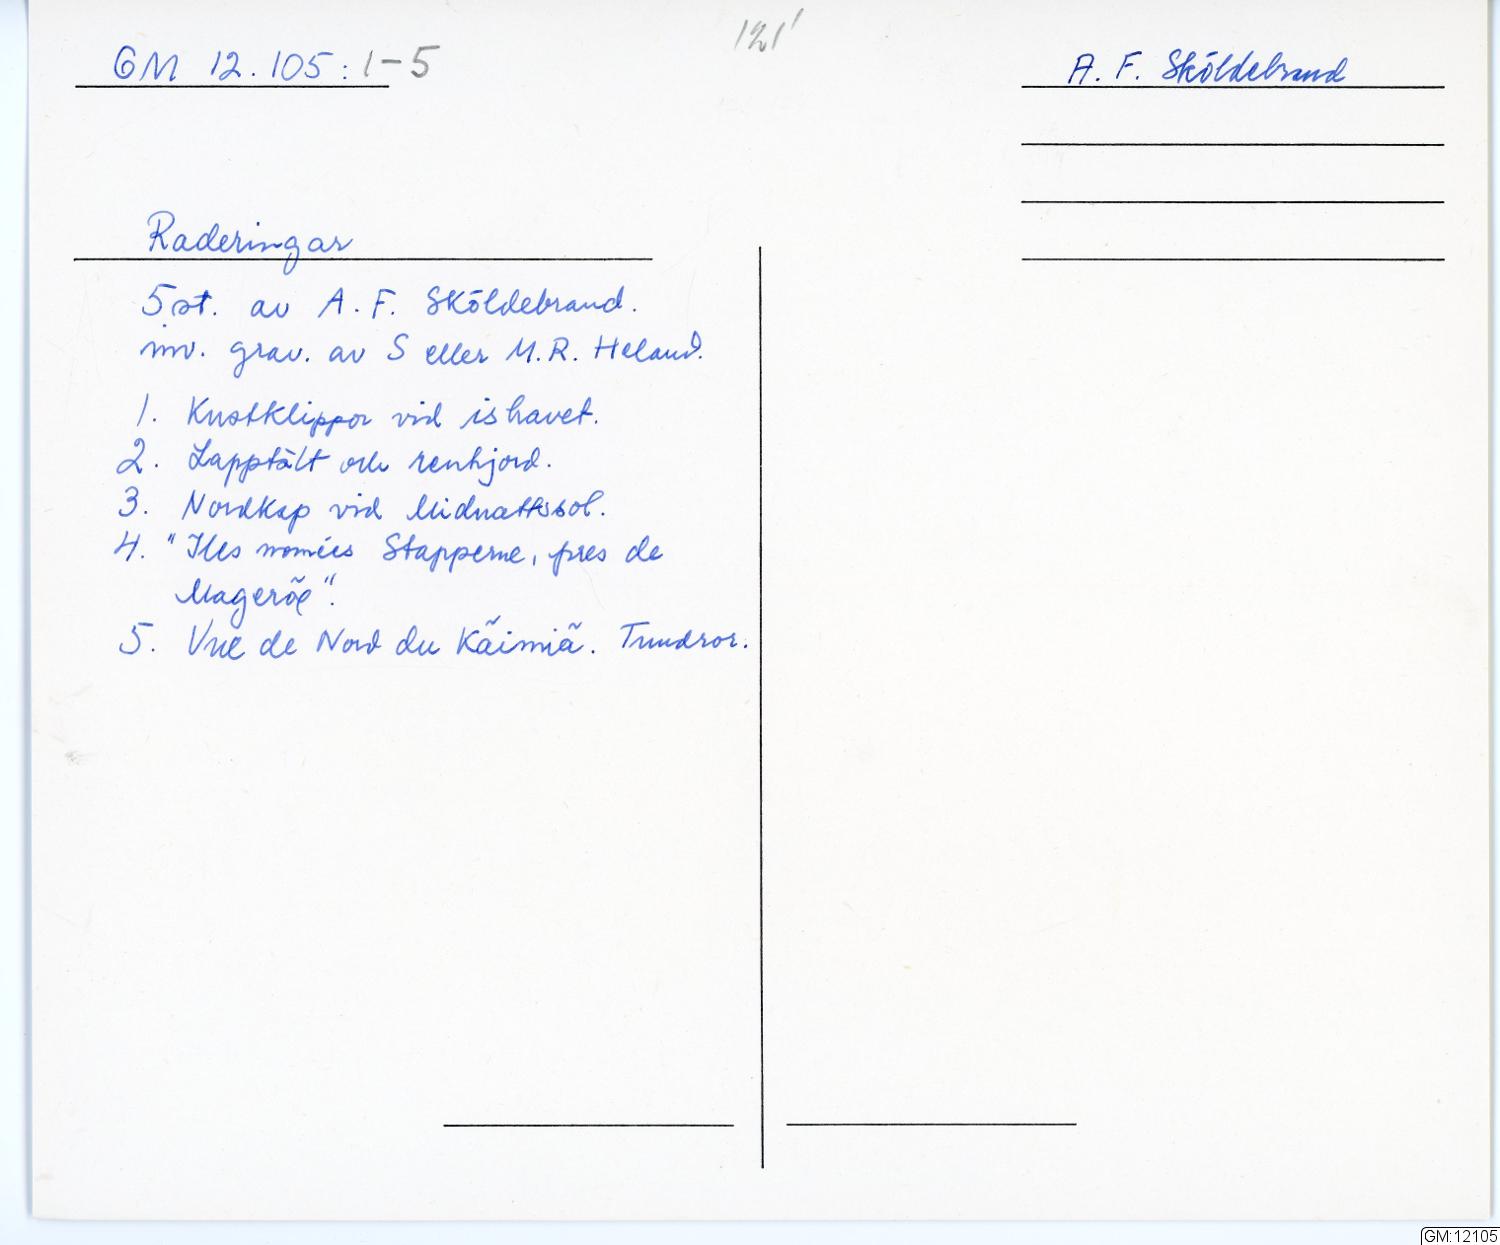 GM 12.105:1-5
121'
A. F. Sköldebrand
Raderingar
5 st. av A. F. Sköldebrand.
inv. grav. av S eller M.R. Heland.
1. Kustklippor vid ishavet.
2. Lapptält och renhjord.
3. Nordkap vid Midnattssol.
4. "Iles nomées Stapperne, pres de
Mageröe".
5. Vue de Nord du Käimiä. Tundror.
GM:12105